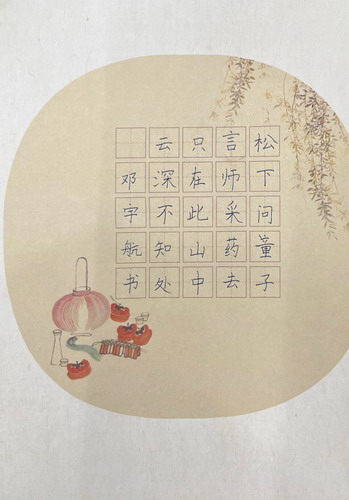 松下问童子
言师采药去
只在此山中
云深不知处
邓宇航书